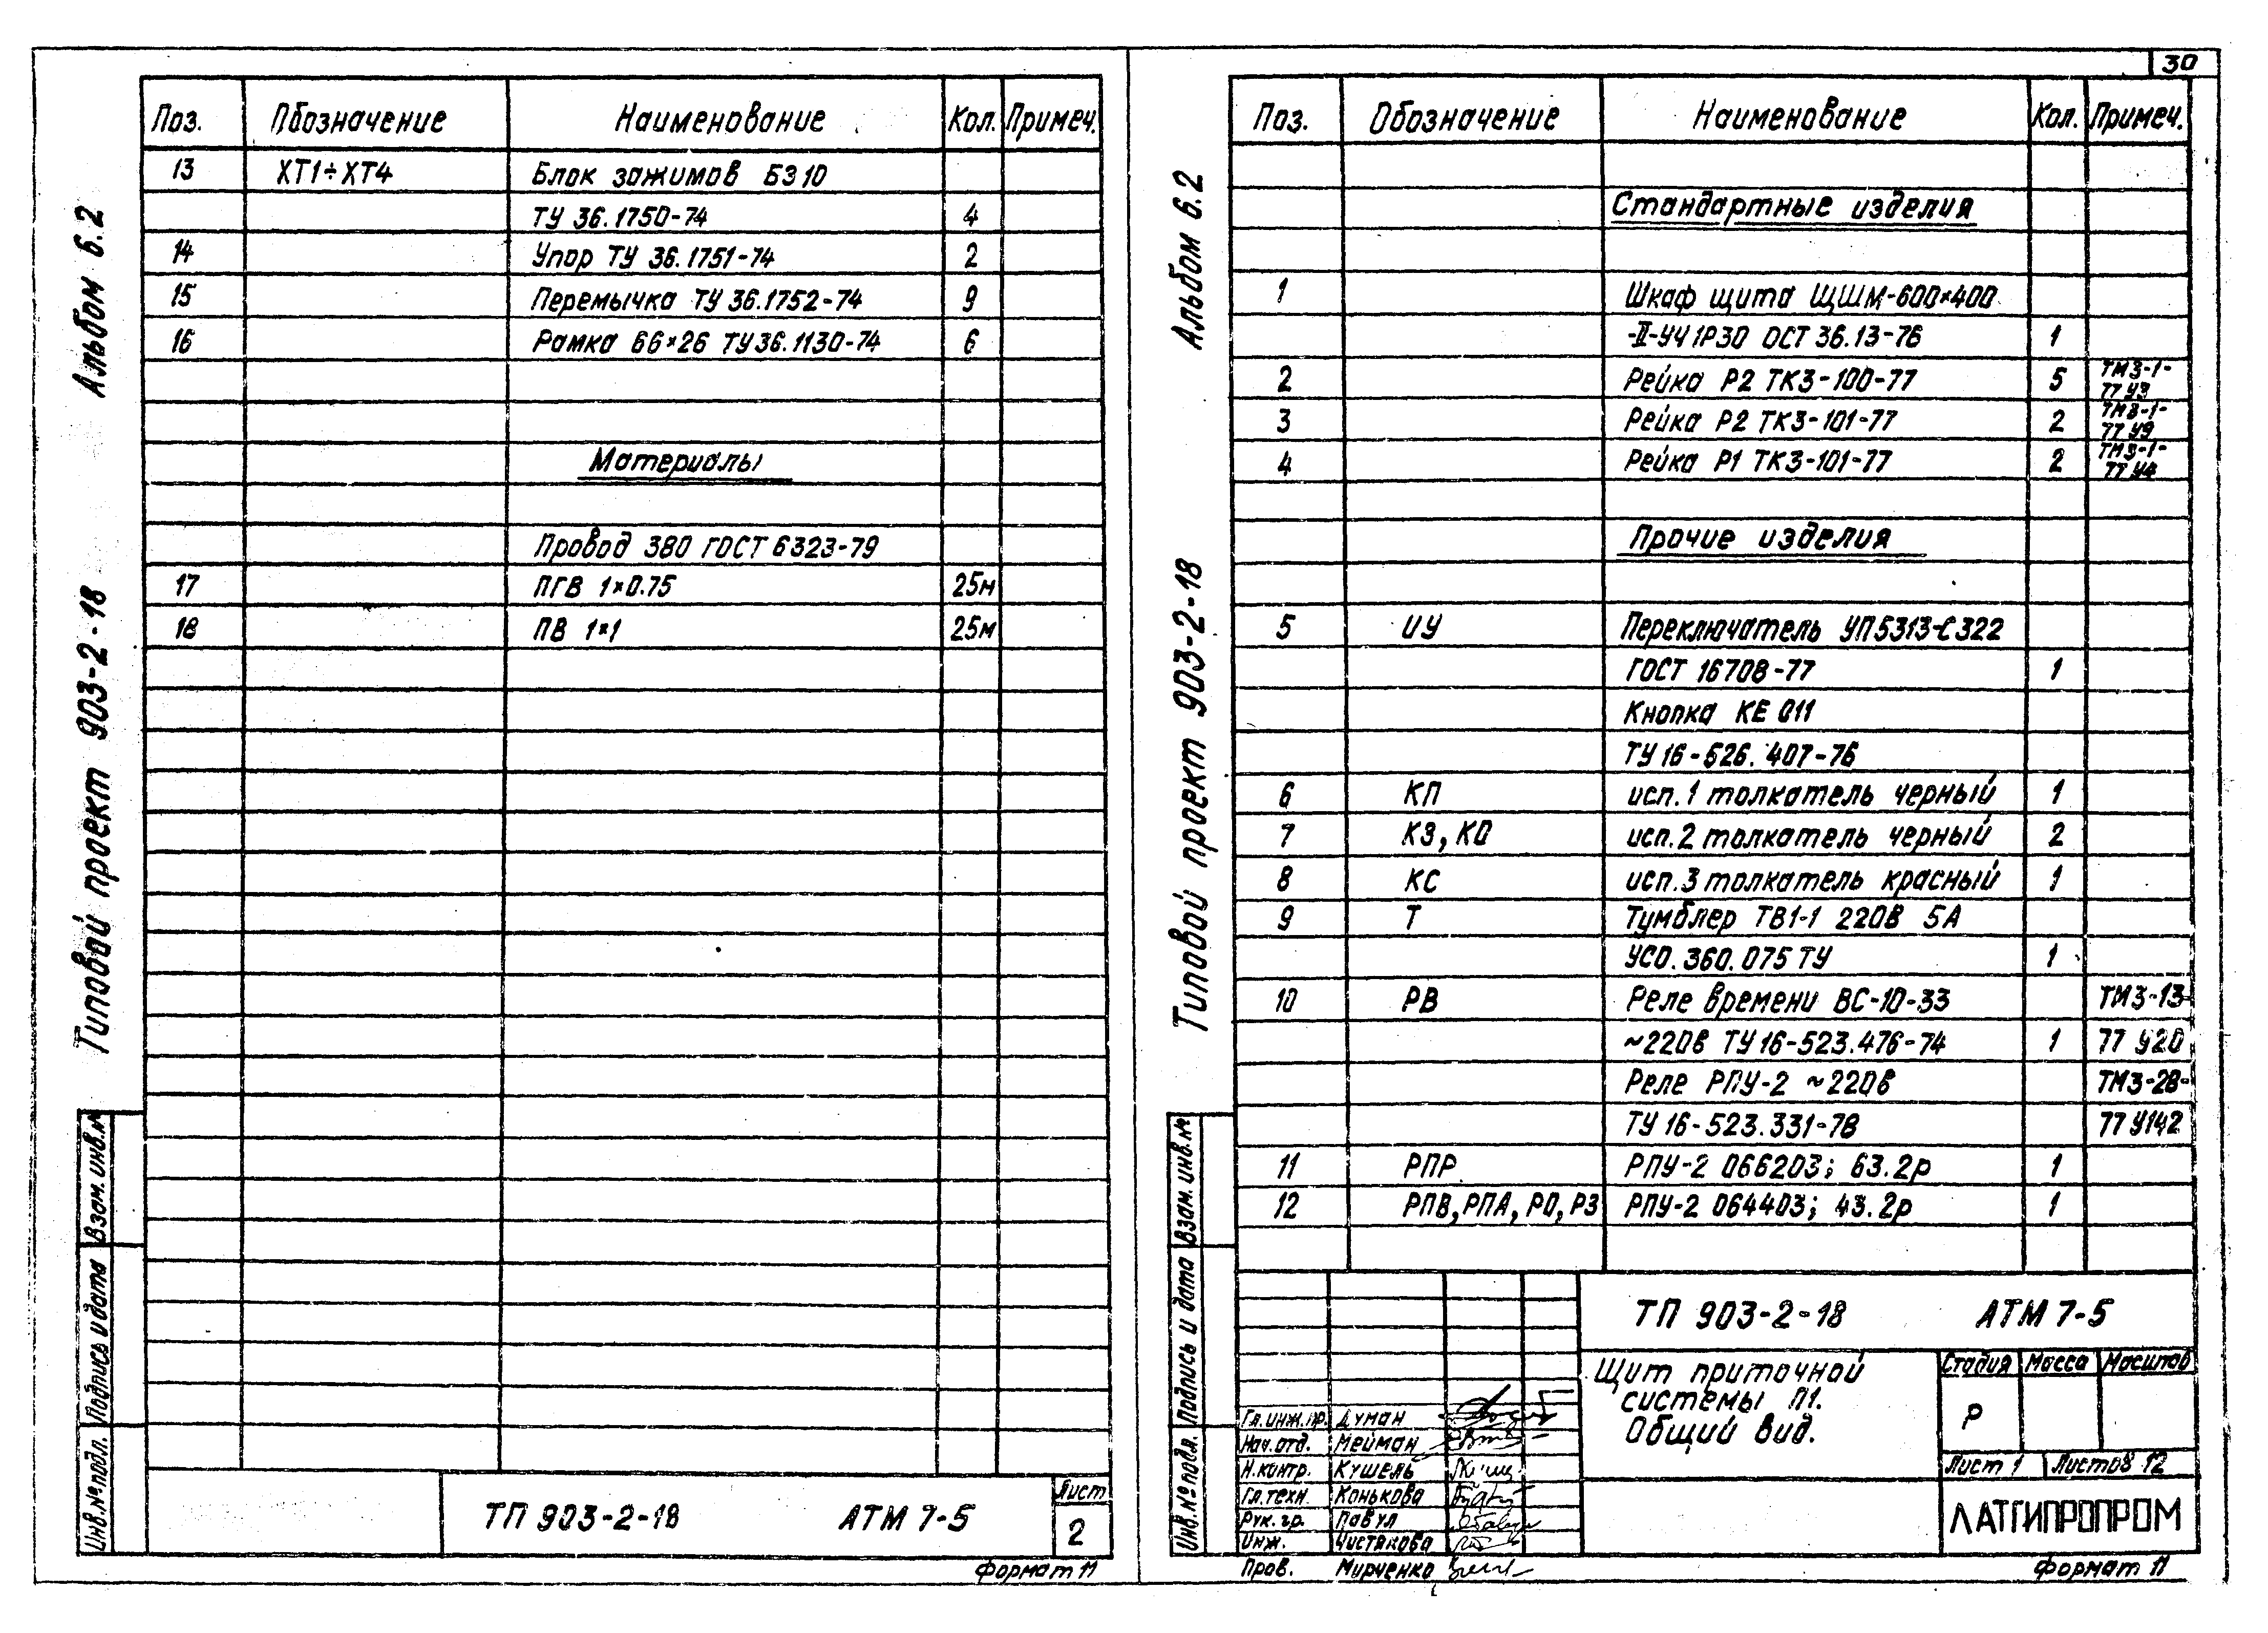 Альбом 6.2
Типовой проект 903-2-18
Взам. инв.№
Подпись и дата
Инв.№ подл.
Поз. Обозначение Наименование Кол. Примеч.
13 ХТ1÷ХТ4 Блок зажимов БЗ 10
ТУ 36.1750-74 4
14 Упор ТУ 36.1751-74 2
15 Перемычка ТУ 36.1752-74 9
16 Рамка 66×26 ТУ 36.1130-74 6
Материалы
Провод 380 ГОСТ 6323-79
17 ПГВ 1×0.75 25м
18 ПВ 1×1 25м
ТП 903-2-18 АТМ 7-5
Лист
2
Формат 11
30
Альбом 6.2
Типовой проект 903-2-18
Взам. инв.№
Подпись и дата
Инв.№ подл.
Поз. Обозначение Наименование Кол. Примеч.
Стандартные изделия
1 Шкаф щита ЩШМ-600×400
-II-УЧ IP30 ОСТ 36.13-76 1
2 Рейка Р2 ТК3-100-77 5 ТМ3-1-
77 У3
3 Рейка Р2 ТК3-101-77 2 ТМ3-1-
77 У9
4 Рейка Р1 ТК3-101-77 2 ТМ3-1-
77 У4
Прочие изделия
5 ИУ Переключатель УП5313-С322
ГОСТ 16708-77 1
Кнопка КЕ 011
ТУ 16-526.407-76
6 КП исп.1 толкатель черный 1
7 КЗ, КО исп.2 толкатель черный 2
8 КС исп.3 толкатель красный 1
9 Т Тумблер ТВ1-1 220В 5А
УСО.360.075 ТУ 1
10 РВ Реле времени ВС-10-33 ТМ3-13-
~220в ТУ 16-523.476-74 1 77 У20
Реле РПУ-2 ~220в ТМ3-28-
ТУ 16-523.331-78 77 У142
11 РПР РПУ-2 066203; 63.2р 1
12 РПВ, РПА, РО, РЗ РПУ-2 064403; 43.2р 1
ТП 903-2-18 АТМ 7-5
Щит приточной
системы П1.
Общий вид.
Стадия Масса Масштаб
Р
Лист 1 Листов 12
ЛАТГИПРОПРОМ
Гл. инж. пр. Думан
Нач. отд. Мейман
Н. контр. Кушель
Гл. техн. Конькова
Рук. гр. Павул
Инж. Чистякова
Пров. Мирченко
Формат 11